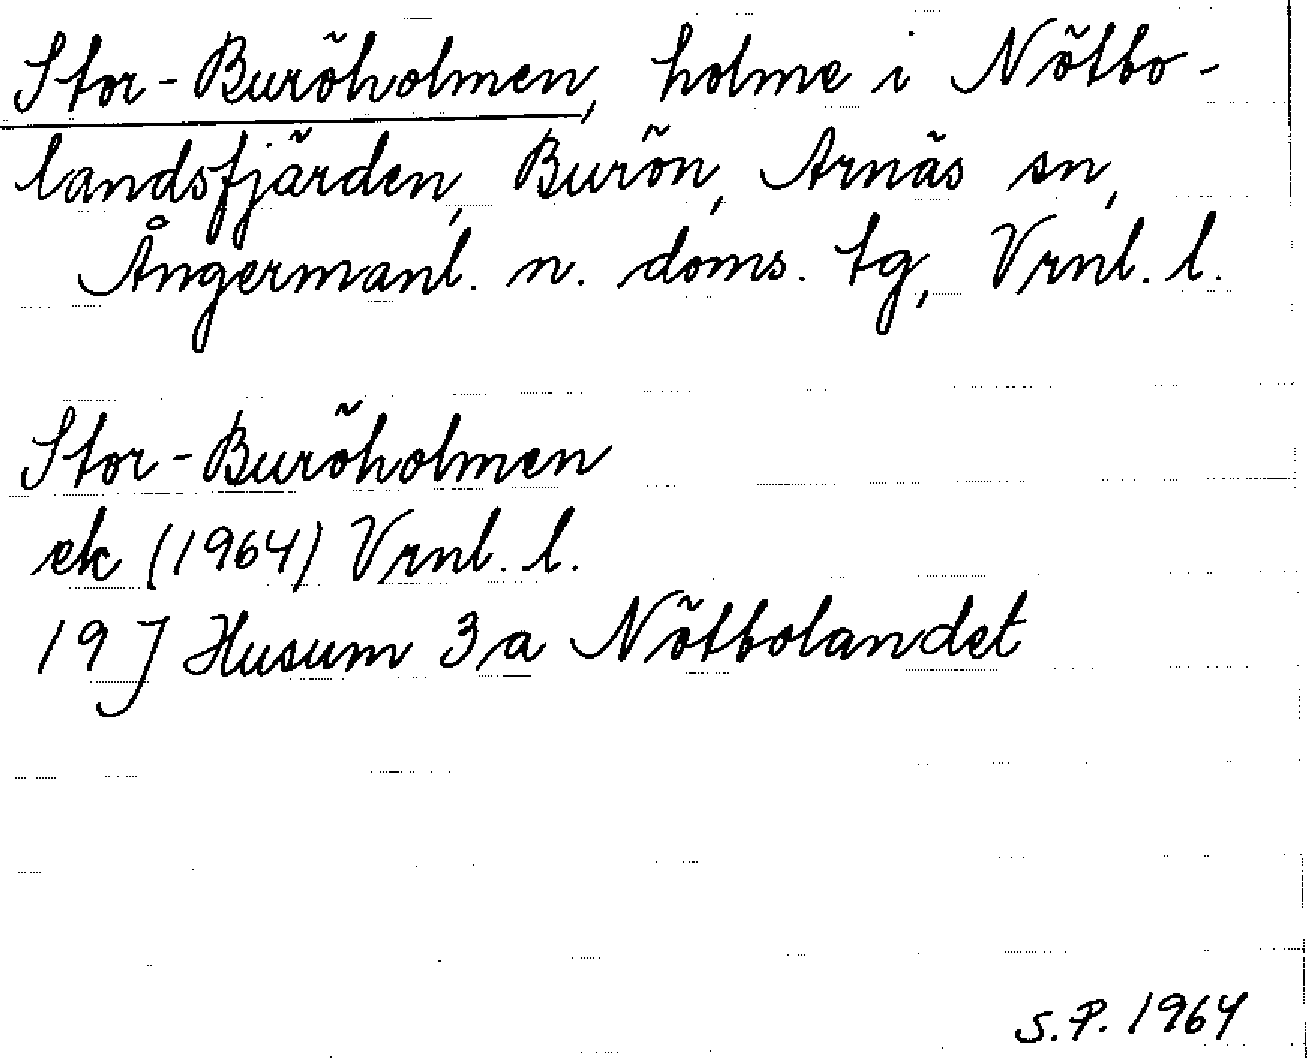 Stor-Buröholmen, holme i Nötbo-
landsfjärden, Burön, Arnäs sn,
Ångermanl. n. doms. tg, Vrnl. l.
Stor-Buröholmen
ek (1964) Vrnl. l.
19 J Husum 3 a Nötbolandet
S.P. 1964